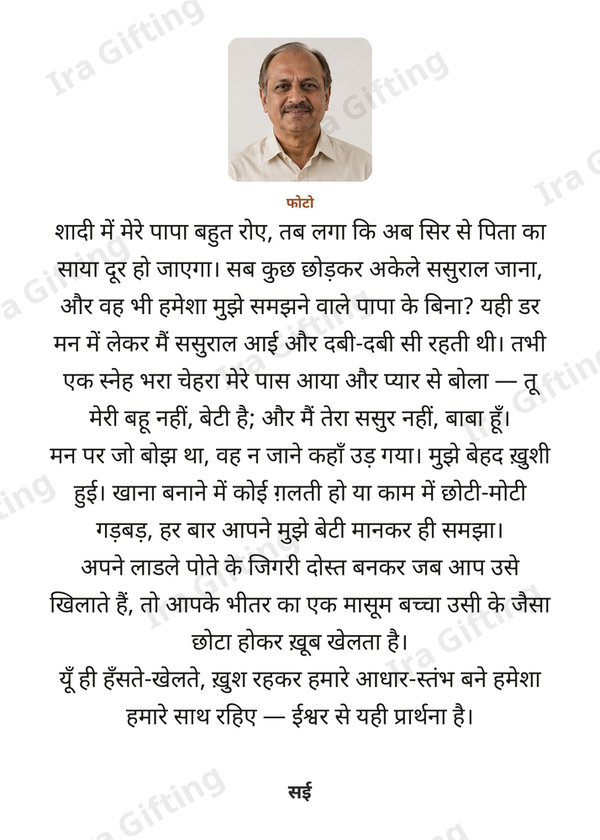 फोटो
शादी में मेरे पापा बहुत रोए, तब लगा कि अब सिर से पिता का
साया दूर हो जाएगा। सब कुछ छोड़कर अकेले ससुराल जाना,
और वह भी हमेशा मुझे समझने वाले पापा के बिना? यही डर
मन में लेकर मैं ससुराल आई और दबी-दबी सी रहती थी। तभी
एक स्नेह भरा चेहरा मेरे पास आया और प्यार से बोला — तू
मेरी बहू नहीं, बेटी है; और मैं तेरा ससुर नहीं, बाबा हूँ।
मन पर जो बोझ था, वह न जाने कहाँ उड़ गया। मुझे बेहद ख़ुशी
हुई। खाना बनाने में कोई ग़लती हो या काम में छोटी-मोटी
गड़बड़, हर बार आपने मुझे बेटी मानकर ही समझा।
अपने लाडले पोते के जिगरी दोस्त बनकर जब आप उसे
खिलाते हैं, तो आपके भीतर का एक मासूम बच्चा उसी के जैसा
छोटा होकर ख़ूब खेलता है।
यूँ ही हँसते-खेलते, ख़ुश रहकर हमारे आधार-स्तंभ बने हमेशा
हमारे साथ रहिए — ईश्वर से यही प्रार्थना है।
सई
Ira Gifting
Ira Gifting
Ira Gifting
Ira Gifting
Ira Gifting
Ira Gifting
Ira Gifting
Ira Gifting
Ira Gifting